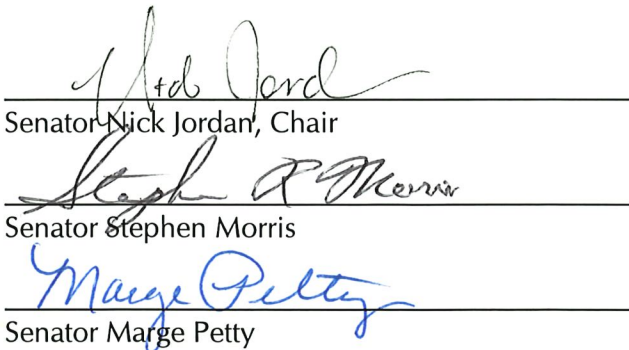 Nick Jord
Senator Nick Jordan, Chair
Stephen R Morris
Senator Stephen Morris
Marge Petty
Senator Marge Petty